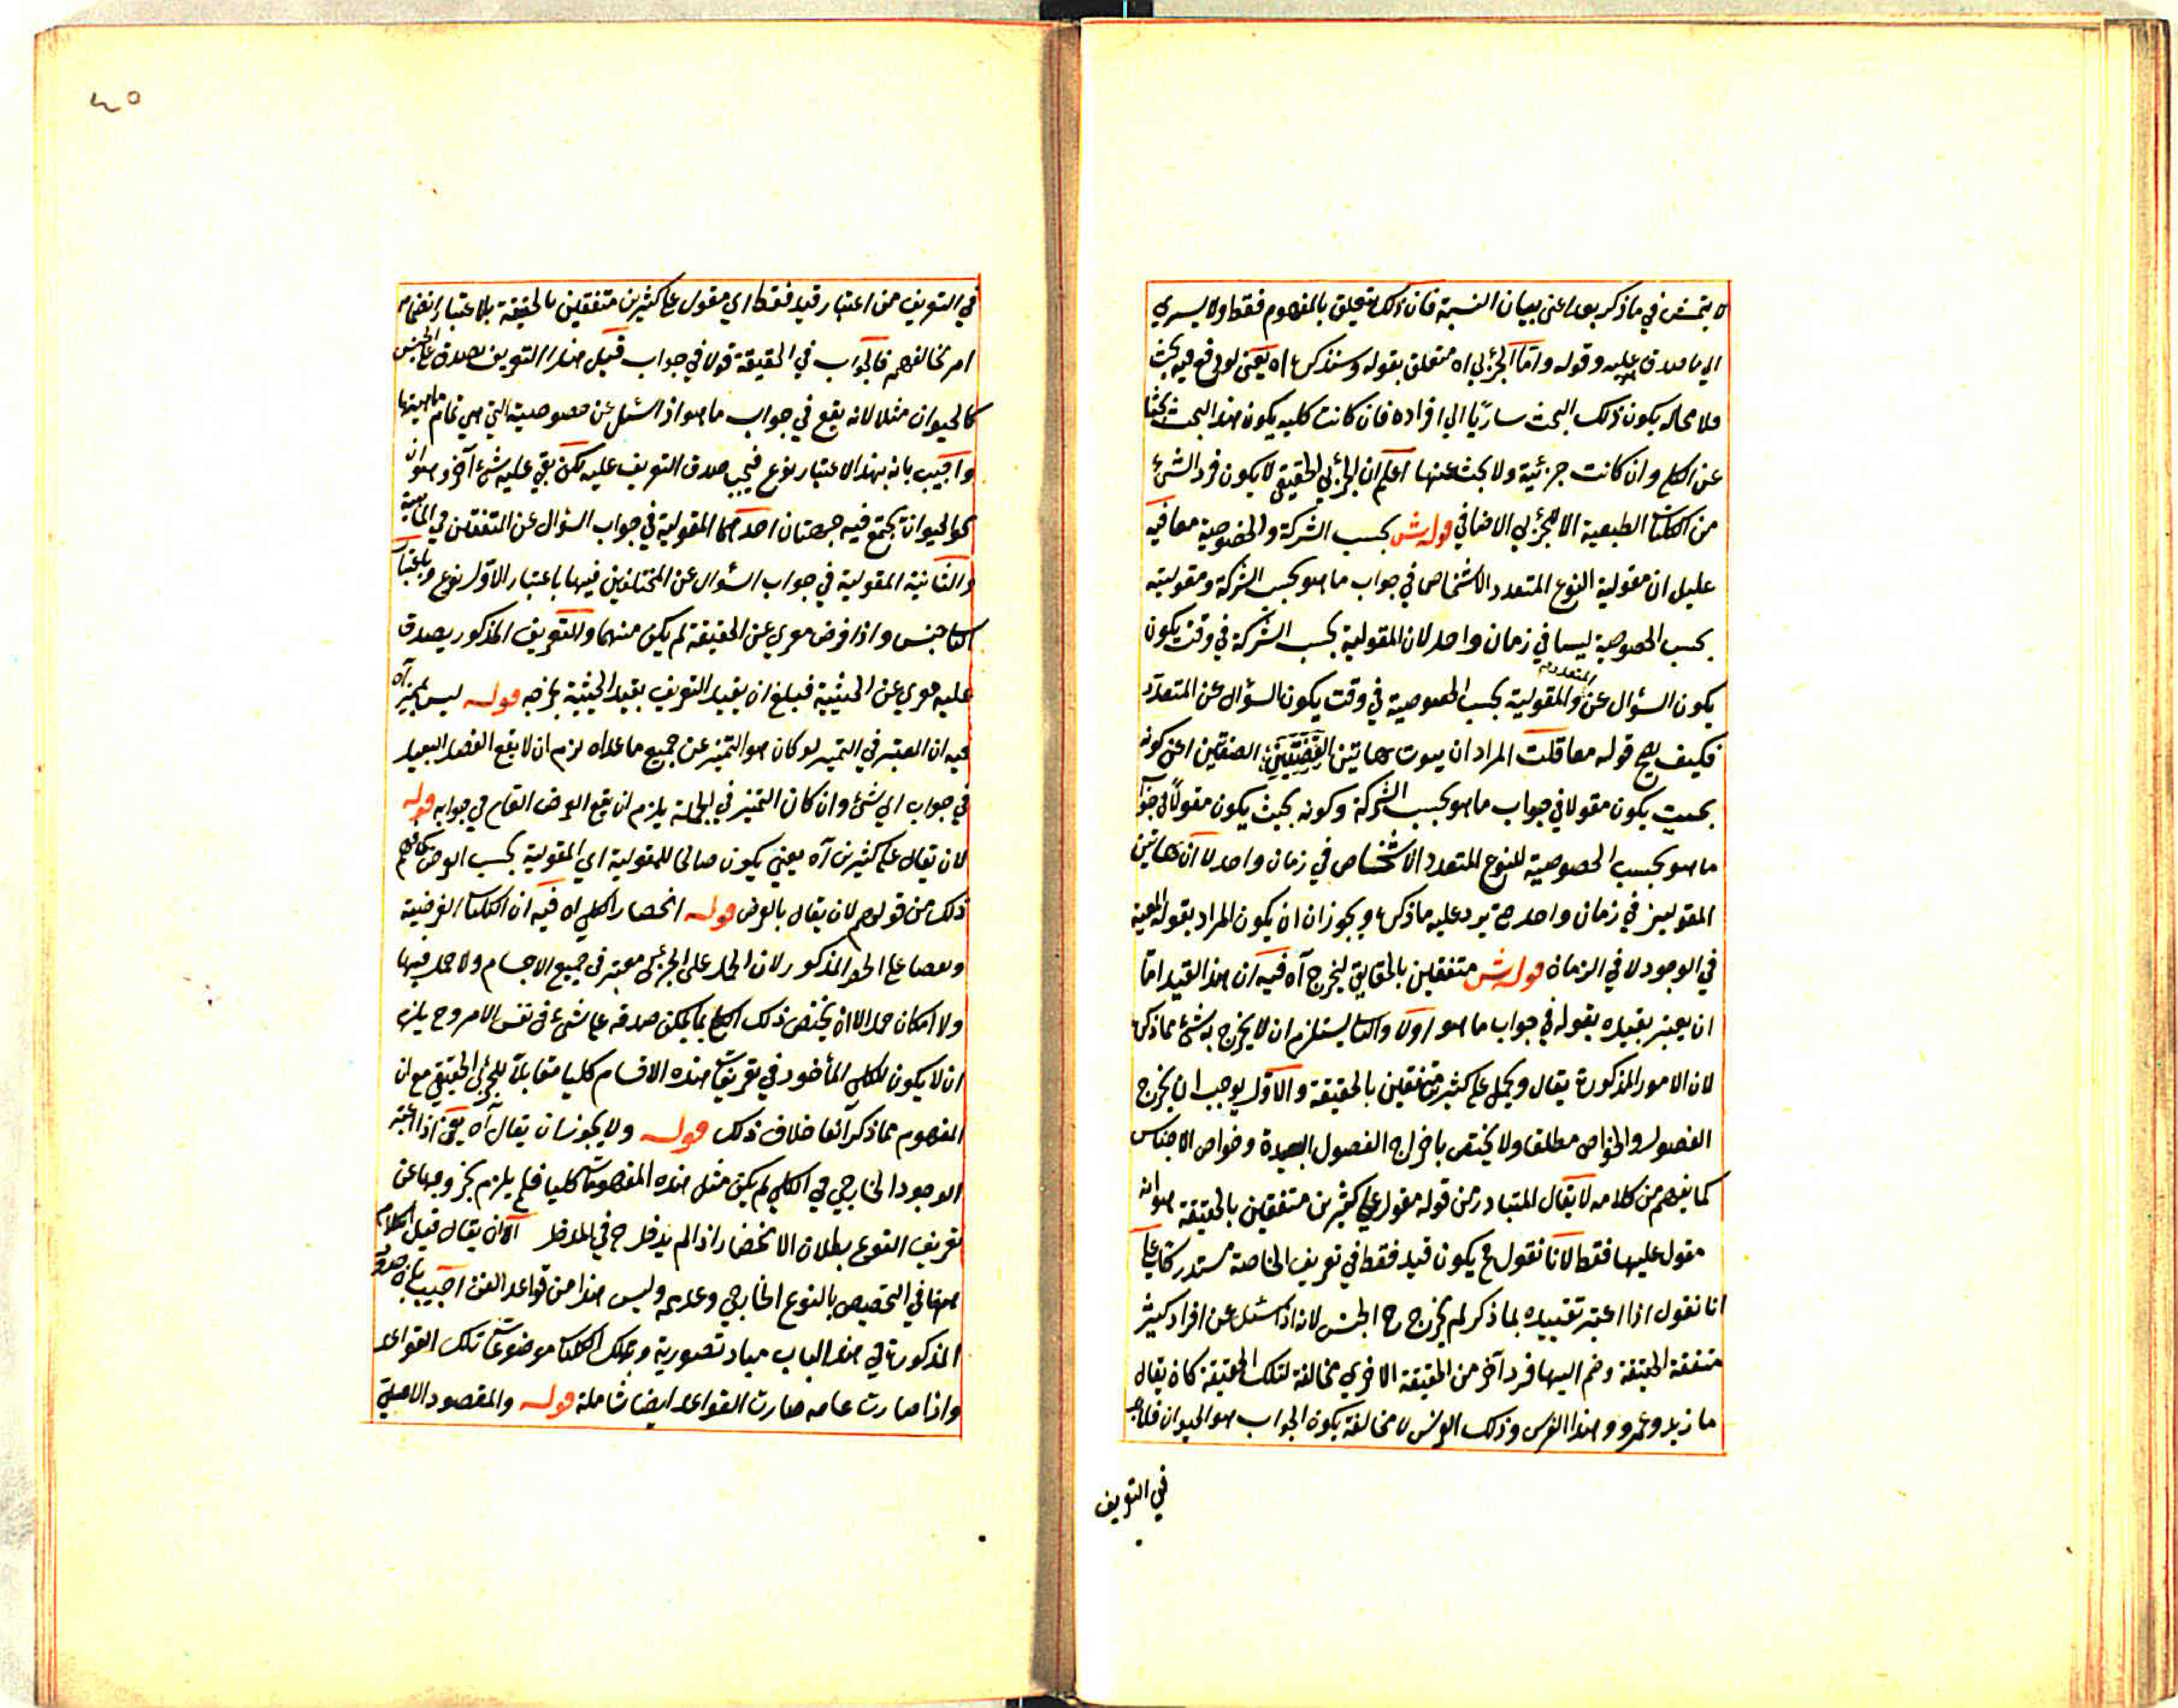 لا يتمشى في ما ذكر بعد اعنى بيان النسبة فان ذلك يتعلق بالمفهوم فقط ولا يسري
الي ما صدق عليه وقوله واما الجزئي اه متعلق بقوله وسنذكر اه يعني لو وقع فيه بحث
فلا محاله يكون ذلك البحث ساريًا الي افراده فان كانت كليه يكون هذا البحث بحثا
عن الكلي وان كانت جزئية ولا بحث عنها اعلم ان الجزئي الحقيقي لا يكون فرد الشئ
من الكليات الطبعية الا للجزئي الاضافي قوله ش بحسب الشركة والخصوصية معا فيه
عليل ان مقولية النوع المتعدد الاشخاص في جواب ما هو بحسب الشركة ومقوليته
بحسب الخصوصية ليسا في زمان واحد لان المقولية بحسب الشركة في وقت يكون
يكون السؤال عن المتعدد والمقولية بحسب الخصوصية في وقت يكون السؤال عن المتعدد
فكيف يصح قوله معا قلت المراد ان ثبوت هاتين الصفتين اعنى كونه
بحيث يكون مقولا في جواب ما هو بحسب الشركة وكونه بحيث يكون مقولاً في جواب
ما هو بحسب الخصوصية للنوع المتعدد الاشخاص في زمان واحد لا ان هاتين
المقوليتين في زمان واحد حتى يرد عليه ما ذكر ويجوز ان يكون المراد بقوله المعية
في الوجود لا في الزمان قوله ش متفقين بالحقايق ليخرج آه فيه ان هذا القيد اما
ان يعتبر بقيده بقوله في جواب ما هو اولا والثا يستلزم ان لا يخرج به شئ مما ذكر
لان الامور المذكورة يقال ويحمل على كثيرين متفقين بالحقيقة والاول يوجب ان يخرج
الفصول والخواص مطلقا ولا يختص باخراج الفصول البعيدة وخواص الاجناس
كما يفهم من كلامه لا يقال المتبادر من قوله مقول علي كثيرين متفقين بالحقيقة هو انه
مقول عليها فقط لانا نقول ح يكون قيد فقط في تعريف الخاصة مستدركا علي
انا نقول اذا اعتبر تقييده بما ذكر لم يخرج ح الجنس لانه اذا سئل عن افراد كثير
متفقة الحقيقة وضم اليها فرد آخر من الحقيقة الاخري مخالفة لتلك الحقيقة كان يقال
ما زيد وعمرو وهذا الفرس وذلك الفرس لا مخالفة يكون الجواب هو الحيوان فلا بد
في التعريف
في التعريف من اعتبار قيد فقط اي مقول على كثيرين متفقين بالحقيقة بلا اعتبار انضمام
امر تخالفهم فالجواب في الحقيقة قولا في جواب قيل هذا التعريف يصدق على الجنس
كالحيوان مثلا لانه يقع في جواب ما هو اذا سئل عن خصوصية التي هي تمام ماهيتها
واجيب بانه بهذا الاعتبار نوع فيجب صدق التعريف عليه لكن بقي عليه شئ آخر وهو ان
نحو الحيوان تجتمع فيه جهتان احدهما المقولية في جواب السؤال عن المتفقين في الماهية
والثانية المقولية في جواب السؤال عن المختلفين فيها باعتبار الاول نوع وباعتبار
الثا جنس واذا فرض معري عن الحقيقة لم يكن منهما والتعريف المذكور يصدق
عليه معري عن الحيثية فبلغ ان يقيد التعريف بقيد الحيثية يخرجه قوله ليس بمميز آه
فيه ان المعتبر في التميز لو كان هو التميز عن جميع ما عداه لزم ان لا يقع الفصل البعيد
في جواب اي شئ وان كان التميز في الجملة يلزم ان يقع العرض العام في جوابه قوله
لان يقال على كثيرين آه يعني يكون صالحا للمقولية اي المقولية بحسب العرض
ذلك من قولهم لان يقال بالعرض قوله انحصار الكلي اه فيه ان الكليات الفرضية
ولا امكان حمل الا ان يختص ذلك الكلي بما يمكن صدقه على شئ في نفس الامر وح يلزم
ان لا يكون الكلي المأخوذ في تعريفات هذه الاقسام كليا مقابلا للجزئي الحقيقي مع ان
المفهوم مما ذكر آنفا خلاف ذلك قوله ولا يجوز ان يقال آه يعني اذا اعتبر
الوجود الخارجي في الكلي لم يكن مثل هذه المفهومات كليا فلم يلزم بخروجها عن
تعريف النوع بطلان الانحصار اذا لم يدخل ح في الملاحظ الا ان يقال قيل الكلام
ههنا في التخصيص بالنوع الخارجي وعدمه وليس هذا من قواعد الفن اجيب بان
المذكورة في هذا الباب مباد تصورية وتلك الكليات موضوعات تلك القواعد
واذا صارت عامه صارت القواعد ايضا شاملة قوله والمقصود الاصلي